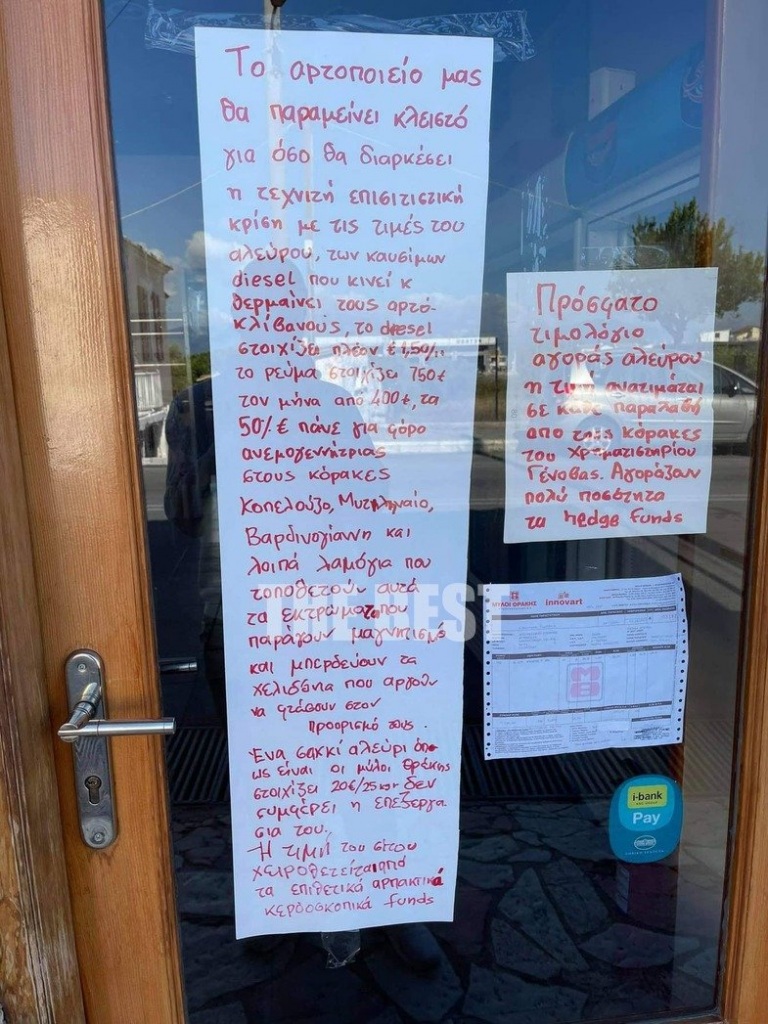 Το αρτοποιείο μας
θα παραμείνει κλειστό
για όσο θα διαρκέσει
η τεχνιτή επισιτιστική
κρίση με τις τιμές του
αλεύρου, των καυσίμων
diesel που κινεί κ
θερμαίνει τους αρτό-
κλίβανους, το diesel
στοιχίζει πλέον € 1,50/lt.
το ρεύμα στοιχίζει 750€
τον μήνα από 400€, τα
50% € πάνε για φόρο
ανεμογεννήτριας
στους κόρακες
Κοπελούζο, Μυτιληναίο,
Βαρδινογιάννη και
λοιπά λαμόγια που
τοποθετούν αυτά
τα εκτρώματα που
παράγουν μαγνητισμός
και μπερδεύουν τα
χελιδόνια που αργούν
να φτάσουν στον
προορισμό τους.
Ένα σακκί αλεύρι όπ
ως είναι οι μύλοι θρέκης
στοιχίζει 20€/25κgr δεν
συμφέρει η επεξεργα
σια του.
Η τιμή του σίτου
χειροθετείται από
τα επιθετικά αρπακτικά
κερδοσκοπικά funds
Πρόσφατο
τιμολόγιο
αγοράς αλεύρου
η τιμή ανατιμάται
σε κάθε παραλαβή
απο τους κόρακες
του Χρηματιστηρίου
Γένοβας. Αγοράζουν
πολύ ποσότητα
τα hedge funds
ΜΥΛΟΙ ΘΡΑΚΗΣ innovart
THE BEST
i-bank
Pay